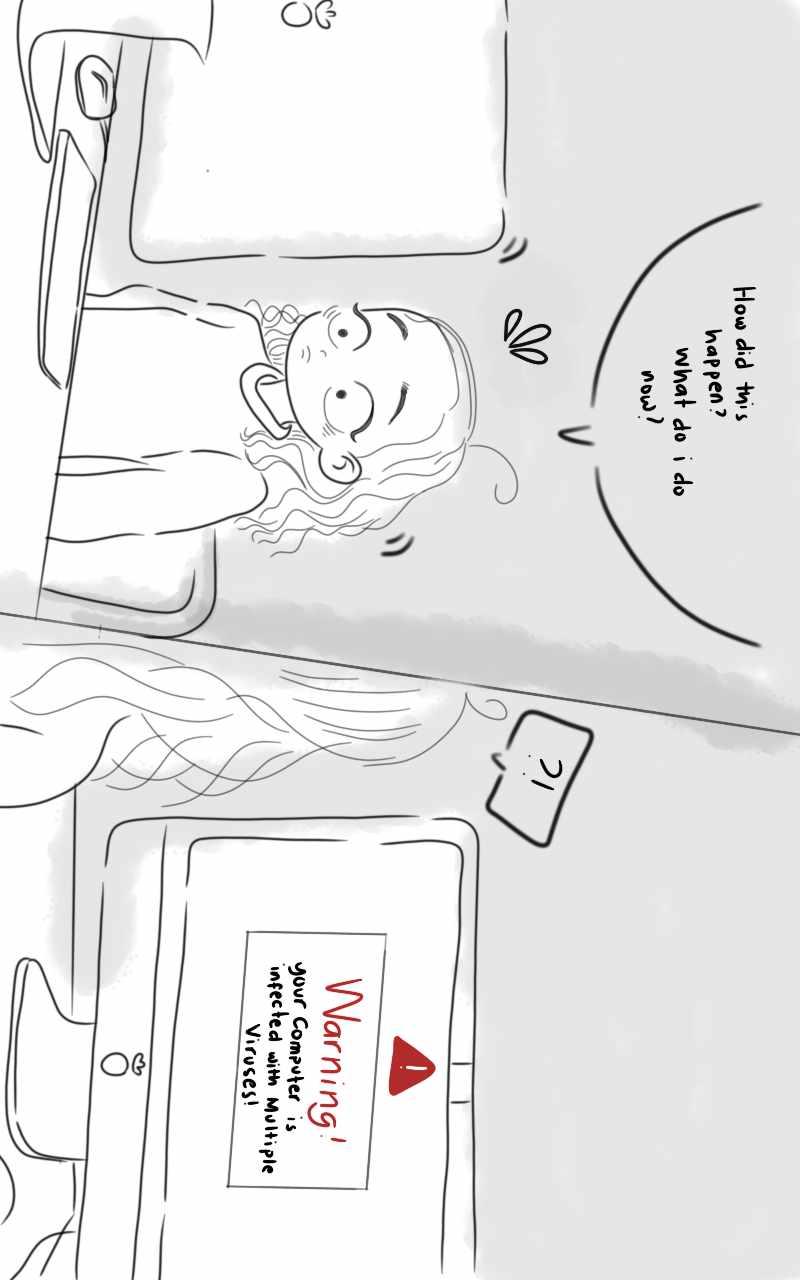 How did this
happen?
What do i do
now?
?!
!
Warning!
your Computer is
infected with Multiple
Viruses!